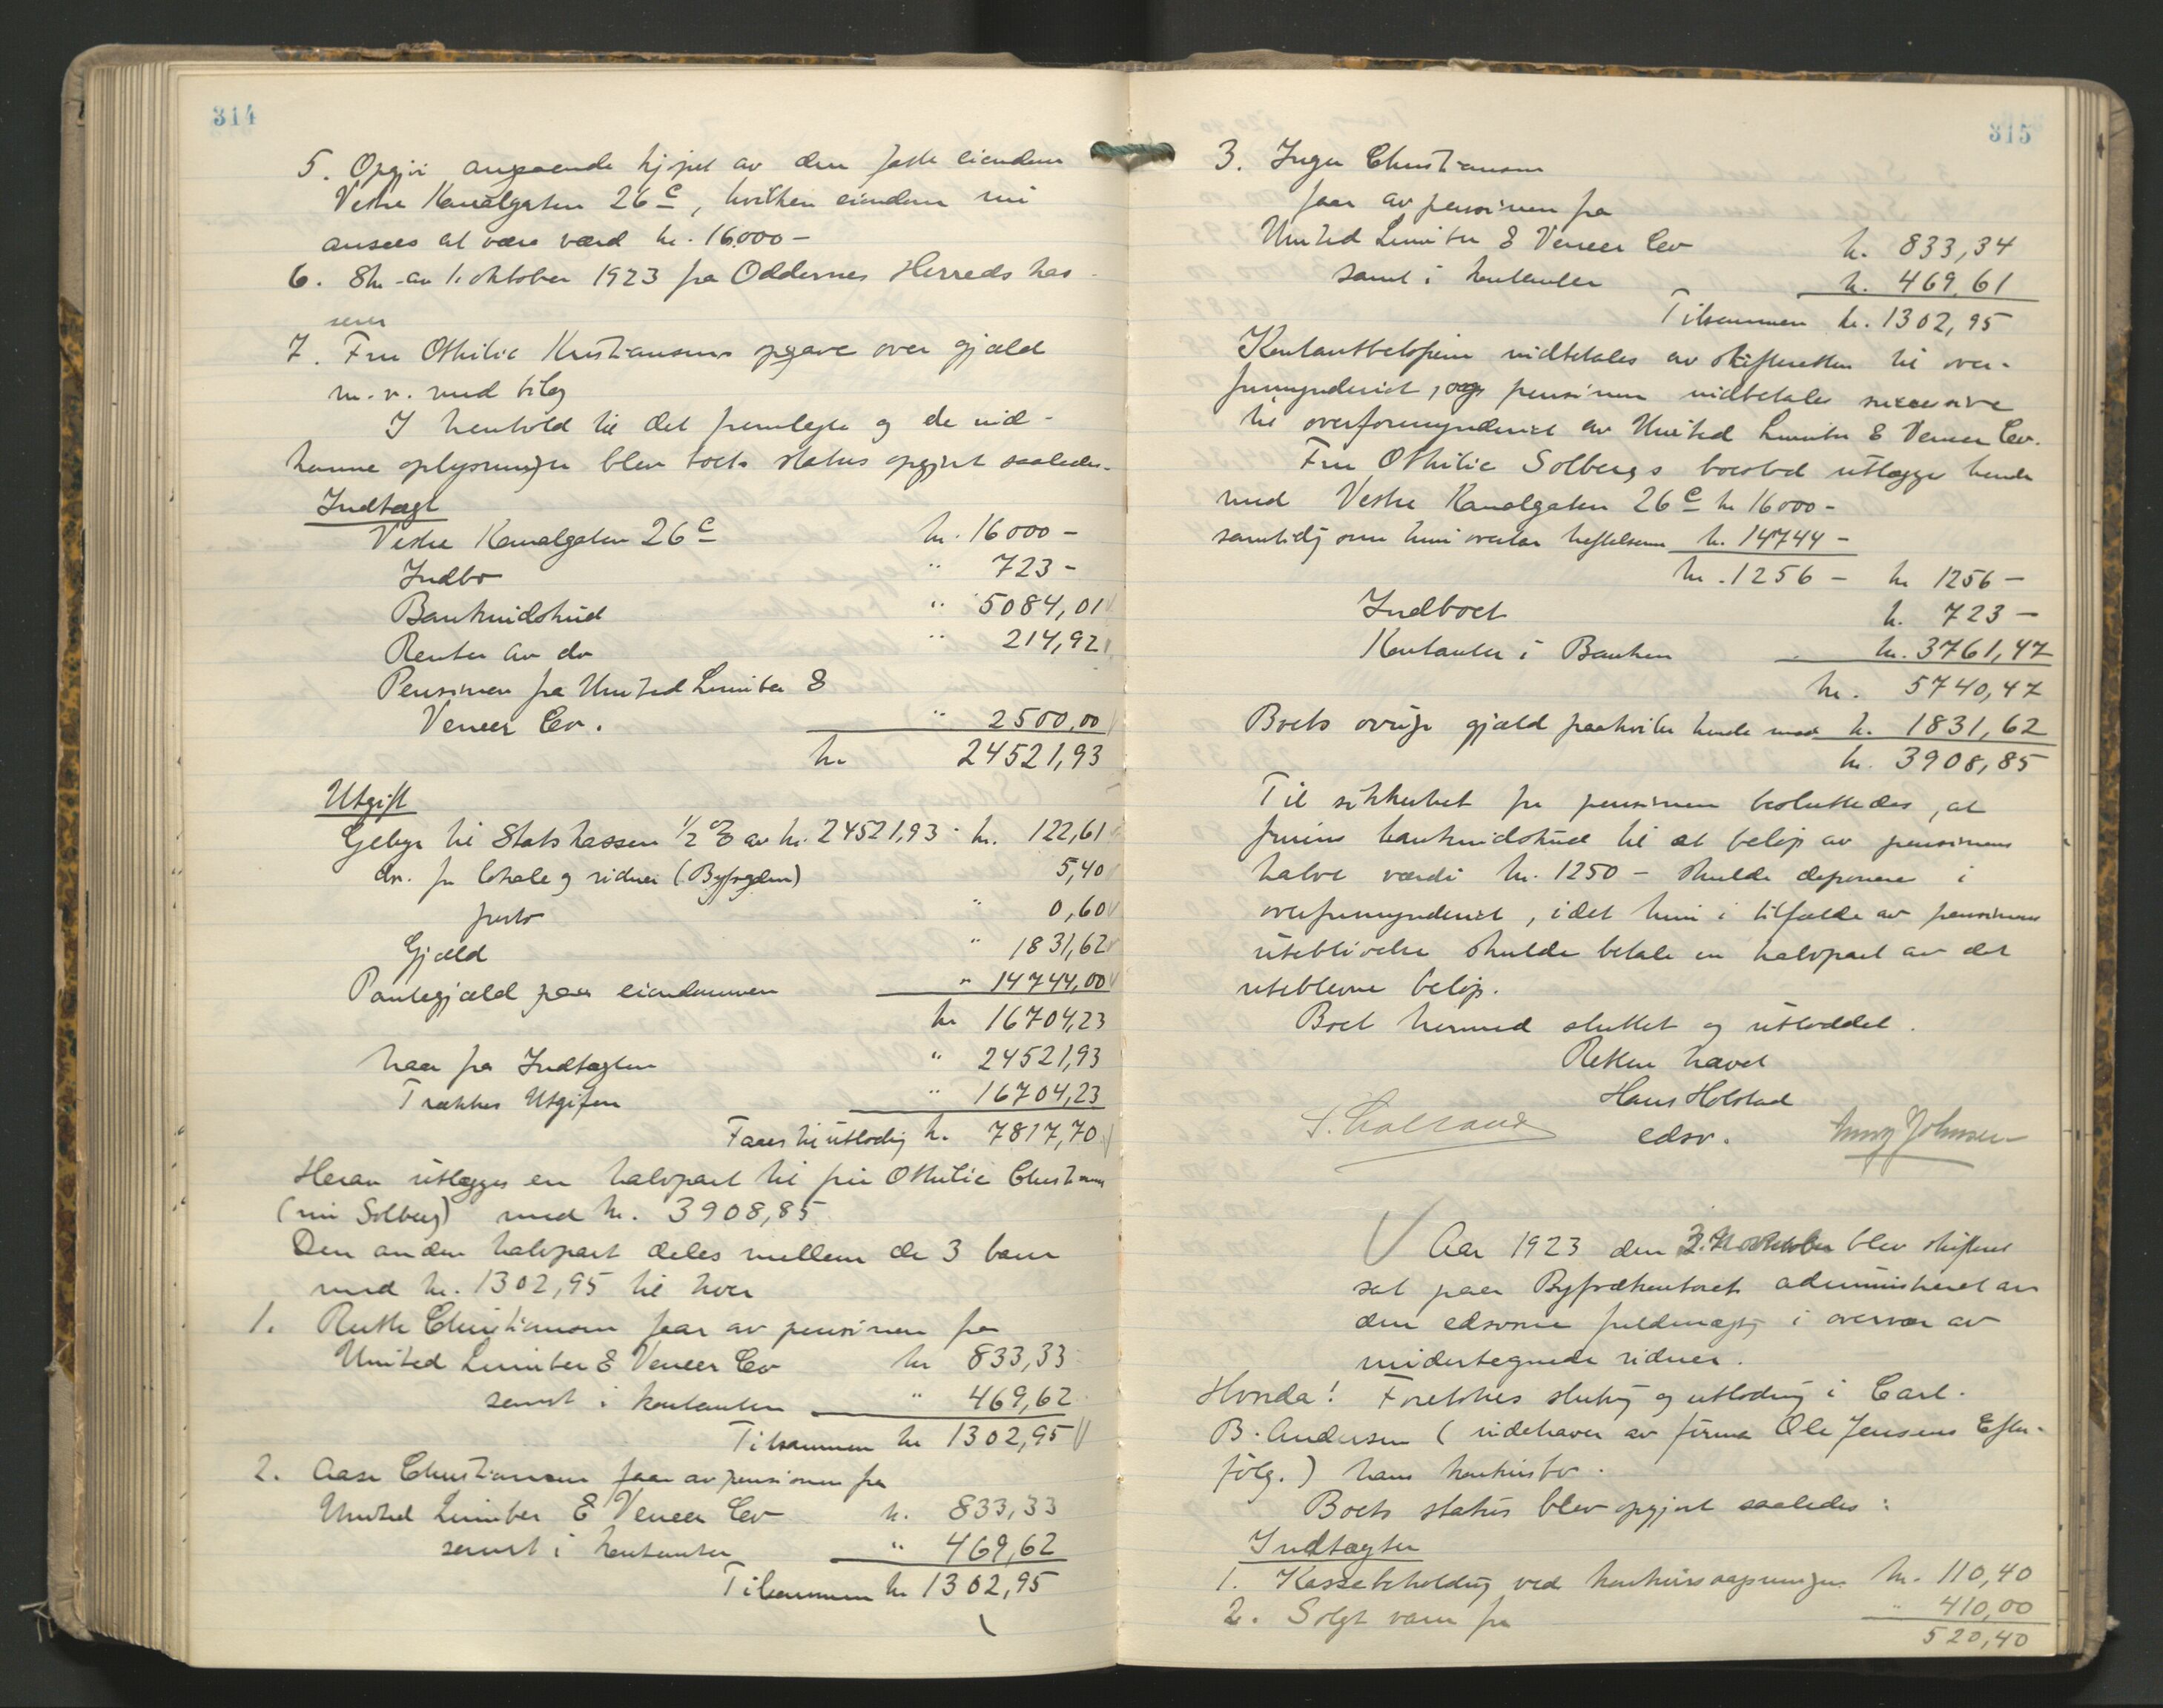 314
5. Opgjør angaaende kjøpet av den faste eiendom
Vestre Kanalgaten 26 c, hvilken eiendom nu
ansees at være værd kr. 16.000 –
6. Skr. av 1. oktober 1923 fra Oddernes Herreds kas-
serer
7. Fru Othilie Kristiansens opgave over gjæld
m.v. med bilag
I henhold til det fremlagte og de ind-
komne oplysninger blev boets status opgjort saaledes.
Indtægt
Vestre Kanalgaten 26 c kr. 16000 –
Indbo " 723 –
Bankindskud " 5084,01
Renter av do " 214,92
Pensionen fra United Lumber &
Veneer Co. " 2500,00
kr. 24521,93
Utgift
Gebyr til Statskassen 1/2 % av kr. 24521,93 · kr. 122,61
do. for lokale og vidner (Byfogden) 5,40
porto " 0,60
Gjæld " 1831,62
Pantegjæld paa eiendommen " 14744,00
kr 16704,23
haar fra Indtægten " 24521,93
Trækkes Utgiften " 16704,23
Faaes til utlodning kr. 7817,70
Herav utlægges en halvpart til fru Othilie Christiansen
(nu Solberg) med kr. 3908,85
Den anden halvpart deles mellem de 3 barn
med kr. 1302,95 til hver
1. Ruth Christiansen faar av pensionen fra
United Lumber & Veneer Co kr 833,33
samt i kontanter " 469,62
Tilsammen kr 1302,95
2. Aase Christiansen faar av pensionen fra
United Lumber & Veneer Co k. 833,33
samt i kontanter " 469,62
Tilsammen kr 1302,95
315
3. Inger Christiansen
faar av pensionen fra
United Lumber & Veneer Co k. 833,34
samt i kontanter k. 469,61
Tilsammen kr. 1302,95
Kontantbeløpene indbetales av skifteretten til over-
formynderiet, og pensionen indbetales succesive
til overformynderiet av United Lumber & Veneer Co.
Fru Othilie Solbergs boeslod utlægges hende
med Vestre Kanalgaten 26 c kr 16000 –
samtidig som hun overtar heftelserne k. 14744 –
kr. 1256 – kr 1256 –
Indboet k. 723 –
Kontanter i Banken kr. 3761,47
kr. 5740,47
Boets øvrige gjæld paahviler hende med k. 1831,62
kr. 3908,85
Til sikkerhet for pensionen besluttedes, at
fruens bankindskud til et beløp av pensionens
halve værdi kr. 1250 – skulde deponeres i
overformynderiet, idet hun i tilfælde av pensionens
uteblivelse skulde betale en halvpart av det
uteblevne beløp.
Boet hermed sluttet og utloddet.
Retten hævet
Hans Holstad
edsv. Johnsen
Aar 1923 den blev skifteret
sat paa Byfogdkontoret administreret av
den edsvorne fuldmægtig i overvær av
undertegnede vidner.
Hvorda! Foretokes slutning og utlodning i Carl
B. Andersen (indehaver av firma Ole Jensens Efter-
følg.) hans konkursbo.
Boets status blev opgjort saaledes:
Indtægter
1. Kassebeholdning ved konkursaapningen kr. 110,40
2. Solgt varer for " 410,00
520,40